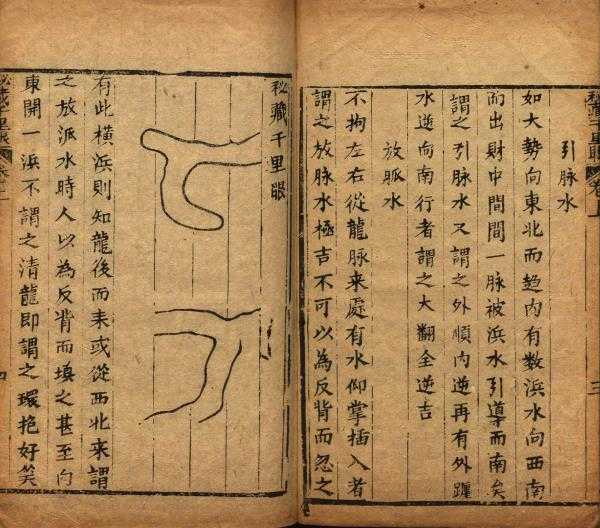 引脉水
如大勢向東北而趋内有数浜水向西南
而出財中間間一脉被浜水引導而南矣
謂之引脉水又謂之外順内逆再有外趯
水逆向南行者謂之大翻全逆吉
放脈水
不拘左右從龍脉来處有水仰掌插入者
謂之放脉水極吉不可以為反背而忽之
秘藏千里眼
有此橫浜則知龍後而来或從西北来謂
之放派水時人以為反背而填之甚至向
東開一浜不謂之清龍即謂之環抱好笑
秘藏千里眼 卷上
三
四